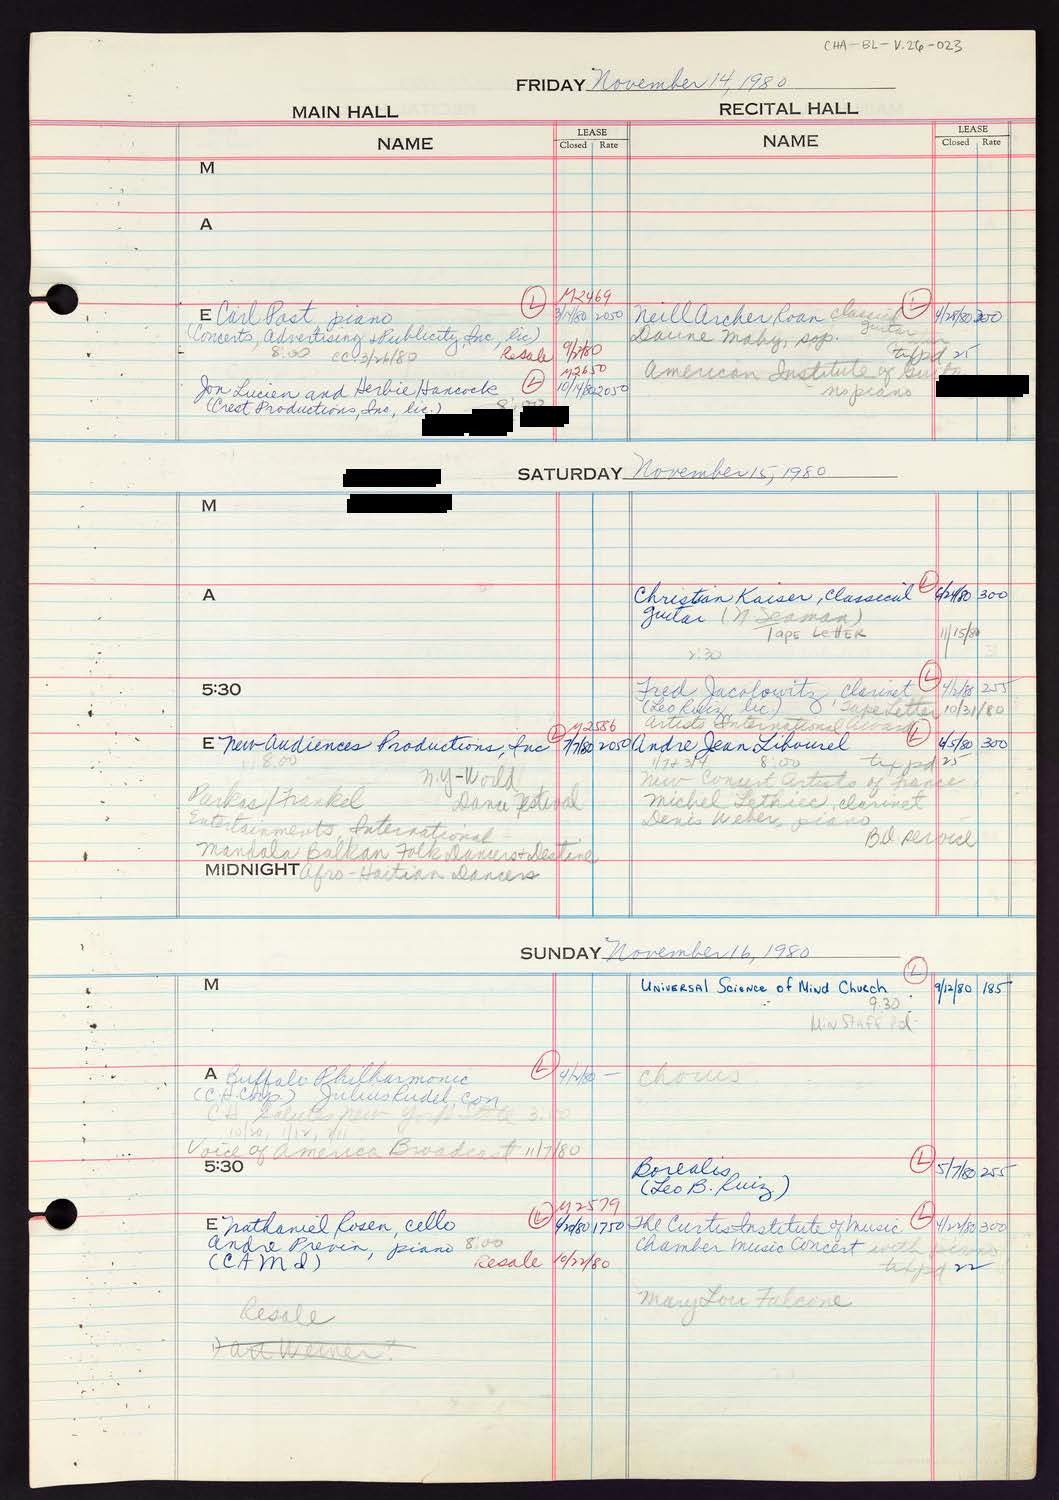 CHA-BL-V.26-023
FRIDAY November 14, 1980
MAIN HALL
RECITAL HALL
NAME
LEASE
Closed Rate
NAME
LEASE
Closed Rate
M
A
E Carl Post piano
(Concerts, Advertising & Publicity, Inc, lic)
8:00 CC 3/26/80
Resale 9/2/80
L
M2469
3/14/80 2050
M2650
Jon Lucien and Herbie Hancock
(Crest Productions, Inc, lic.) 8:00
L
10/14/80 2050
Neill Archer Roan classical
guitar
L
4/28/80 300
Daune Mahy, sop.
tix pd 25
American Institute of Guitar
no piano
SATURDAY November 15, 1980
M
A
Christian Kaiser, classical
L
6/24/80 300
guitar (N Seaman)
TAPE LETTER
11/15/80
2:30
5:30
Fred Jacobowitz clarinet
L
4/2/80 255
(Leo Ruiz, lic) Tape Letter 10/31/80
Artists International Award
E New Audiences Productions, Inc
L
M2586
7/7/80 2050
8:00
N.Y-World
Dance Festival
Parkas/Frankel
Entertainments, International
Mandala Balkan Folk Dancers & Destine
MIDNIGHT Afro-Haitian Dancers
Andre Jean Libourel
L
4/5/80 300
8:00 tix pd 25
New Concert Artists of France
Michel Lethiec, clarinet
Denis Weber, piano
Bd service
SUNDAY November 16, 1980
M
UNIVERSAL SCIENCE OF MIND CHURCH
L
9/12/80 185
9:30
MIN STAFF Pd
A Buffalo Philharmonic
L
4/2/80 —
(C.H. Corp.) Julius Rudel, con
CH Salutes New York State 3:00
Voice of America Broadcast 11/7/80
chorus
5:30
Borealis
L
5/7/80 255
(Leo B. Ruiz)
E Nathaniel Rosen, cello
L
M2579
4/20/80 1750
Andre Previn, piano 8:00
(CAMI)
Resale 10/22/80
Resale
Art Weiner
The Curtis Institute of Music
L
4/22/80 300
Chamber Music Concert with piano
tix pd 22
Mary Lou Falcone